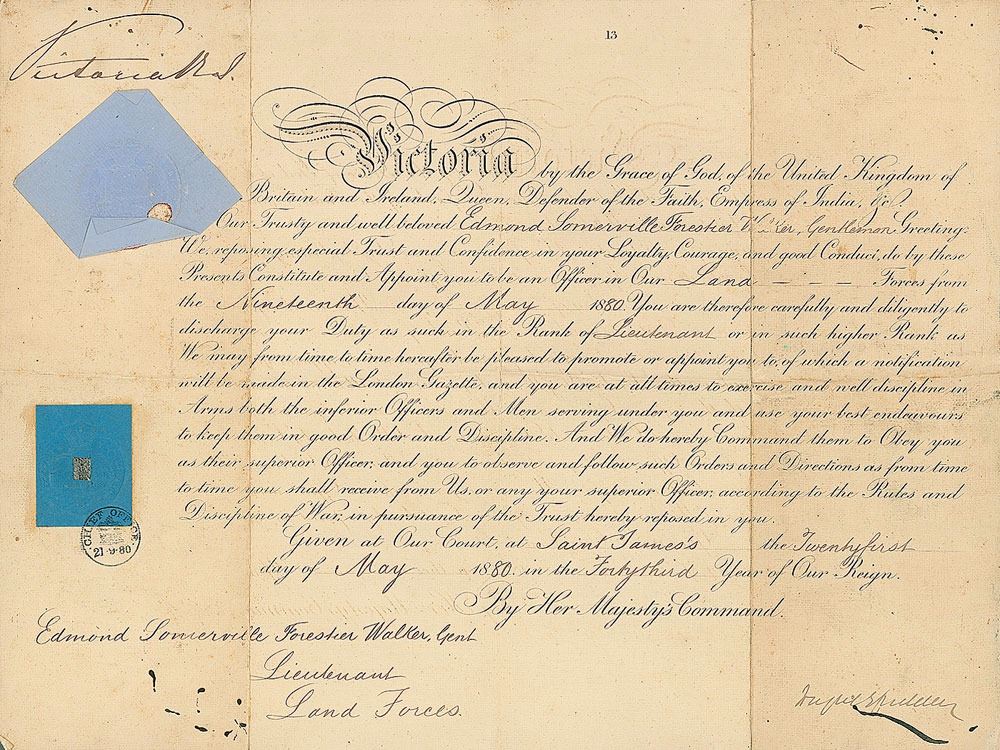 13
Victoria R I
Victoria by the Grace of God, of the United Kingdom of
Britain and Ireland, Queen, Defender of the Faith, Empress of India, &c.
Our Trusty and well beloved Edmond Somerville Forestier Walker, Gentleman Greeting:
We, reposing especial Trust and Confidence in your Loyalty, Courage, and good Conduct, do by these
Presents Constitute and Appoint you to be an Officer in Our Land Forces from
the Nineteenth day of May 1880. You are therefore carefully and diligently to
discharge your Duty as such in the Rank of Lieutenant or in such higher Rank as
We may from time to time hereafter be pleased to promote or appoint you to, of which a notification
will be made in the London Gazette, and you are at all times to exercise and well discipline in
Arms both the inferior Officers and Men serving under you and use your best endeavours
to keep them in good Order and Discipline. And We do hereby Command them to Obey you
as their superior Officer, and you to observe and follow such Orders and Directions as from time
to time you shall receive from Us, or any your superior Officer, according to the Rules and
Discipline of War, in pursuance of the Trust hereby reposed in you.
Given at Our Court, at Saint James's the Twentyfirst
day of May 1880. in the Fortythird Year of Our Reign.
By Her Majesty's Command.
CHIEF OFFICE
21·9·80
Edmond Somerville Forestier Walker, Gent
Lieutenant
Land Forces.